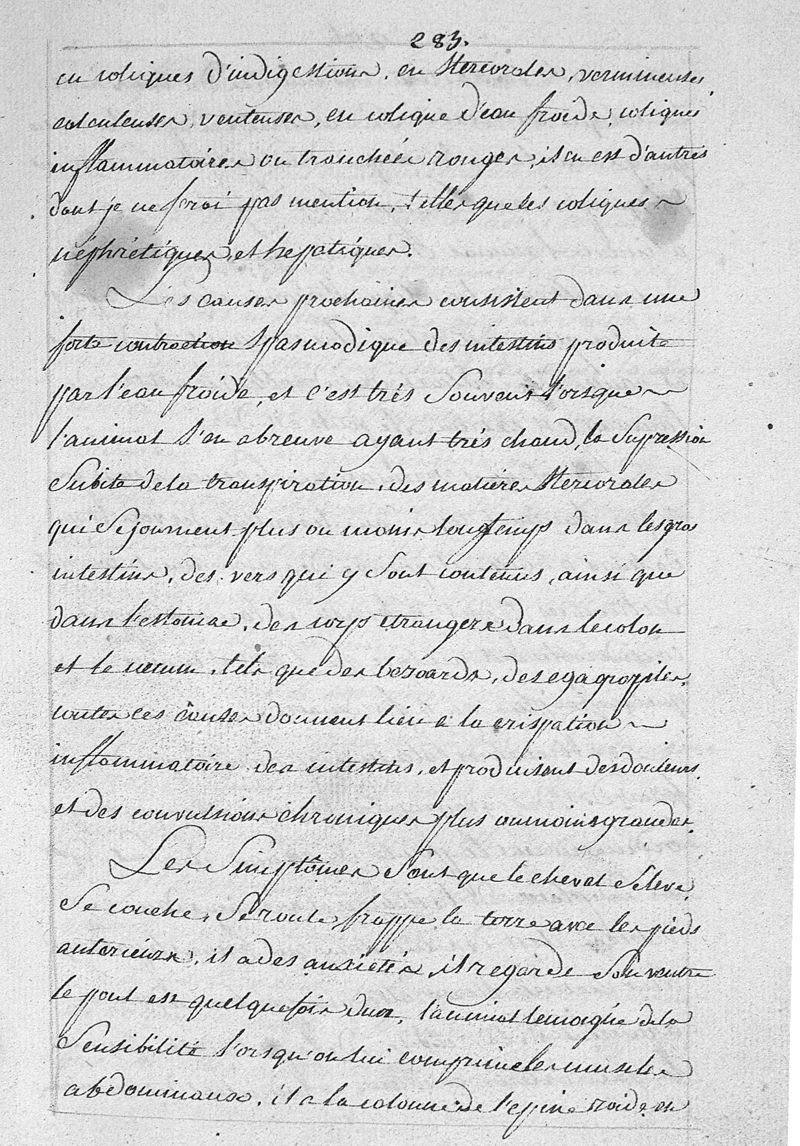 283.
en coliques d'indigestions, en stercorales, vermineuses
calculeuses, venteuses, en colique d'eau froide, coliques
inflammatoires ou tranchées rouges, il en est d'autres
dont je ne ferai pas mention, telles que les coliques
néphrétiques, et hepatiques.
Les causes prochaines consistent dans une
forte contraction spasmodique des intestins produite
par l'eau froide, et c'est très souvent l'orsque
l'animal s'en abreuve ayant très chaud, la supression
subite de la transpiration, des matières stercorales
qui sejournent plus ou moins longtemps dans les gros
intestins, des vers qui y sont contenus, ainsi que
dans l'estomac, des corps etrangers dans le colon
et le cœcum, tels que des bezoards, des egagropiles,
toutes ces causes donnent lieu à la crispation
inflammatoire des intestins, et produisent des douleurs
et des convulsions chroniques plus ou moins grandes.
Les Simptômes sont que le cheval se leve
se couche, se roule, frappe la terre avec les pieds
anterieurs, il a des anxietés, il regarde son ventre
le poul est quelquefois dur, l'animal temoigne de la
sensibilité l'orsqu'on lui comprime les muscles
abdominaux, il a la colonne de l'epine roide et